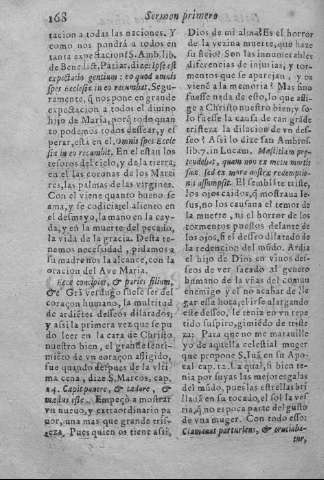 168 Sermon primero
tacion a todas las naciones. Y
como nos pondrá a todos en
tanta expectacion! S. Amb. lib.
de Benedict. Patiar. dice: ipse est
expectatio gentium: eo quod omnis
spes Ecclesiæ in eo recumbat. Segu-
ramente, q̃ nos pone en grande
expectacion a todos el diuino
hijo de Maria, porq̃ todo quan
to podemos todos dessear, y el
perar, esta en el, omnis spes Ecclesiæ
in eo recumbat. En el estan los
tesoros del cielo, y de la tierra,
en el las coronas de los Marti
res, las palmas de las virgines.
Con el viene quanto bueno se
ama, y se codicia; el aliento en
el desmayo, la mano en la cay-
da, y en la muerte del pecado,
la vida de la gracia. Desta te-
nemos necessidad, pidamos a
su madre nos la alcance, con la
oracion del Aue Maria.
Ecce concipies, & paries filium,
&c. Grã verdugo suele ser del
coraçon humano, la multitud
de ardiẽtes desseos dilatados;
y assi la primera vez que se pu
do leer en la cara de Christo
nuestro bien, el grande senti-
miẽto de vn coraçon afligido,
fue quando despues de la vlti
ma cena, dize S. Marcos, cap.
14. Cœpit pauere, & tædere, &
mœstus esse. Empeçò a mostrar
vn nueuo, y extraordinario pa
uor, una mas que grande triste-
za. Pues quien os tiene assi,
Dios de mi alma? Es el horror
de la vezina muerte, que haze
su oficio? Son las innumerables
diferencias de injurias, y tor-
mentos que se aparejan, y os
viene a la memoria? Mas sino
fuesse nada de esso, lo que afli-
ge a Christo nuestro bien, y so-
lo fuesse la causa de tan gråde
tristeza la dilacion de vn des-
seo? Assi lo dize san Ambros.
lib. 7. in Lucam.
los ojos caidos, q̃ mostraua Ie-
sus, no los causaua el temor de
la muerte, ni el horror de los
tormentos puestos delante de
los ojos, si el desseo dilatado de
la redencion del mũdo. Ardia
el hijo de Dios en viuos des-
seos de ver sacado al genero
humano de las vñas del comun
enemigo: y el no acabar de lle
gar essa hora, el irse alargando
este desseo, le tenia en vn repe
tido suspiro, gimiẽdo de triste
za: Para que no me marauille
yo de aquella celestial muger
que propone S. Iuã, en su Apo-
cal. cap. 12. La qual, si bien te-
nia por suyas las mejores galas
del mũdo, pues las estrellas bri
llauã en su tocado, el sol la ves
tia, q̃ no es poca parte del gusto
de vna muger. Con todo esso:
Clamabat parturiens, & crucia